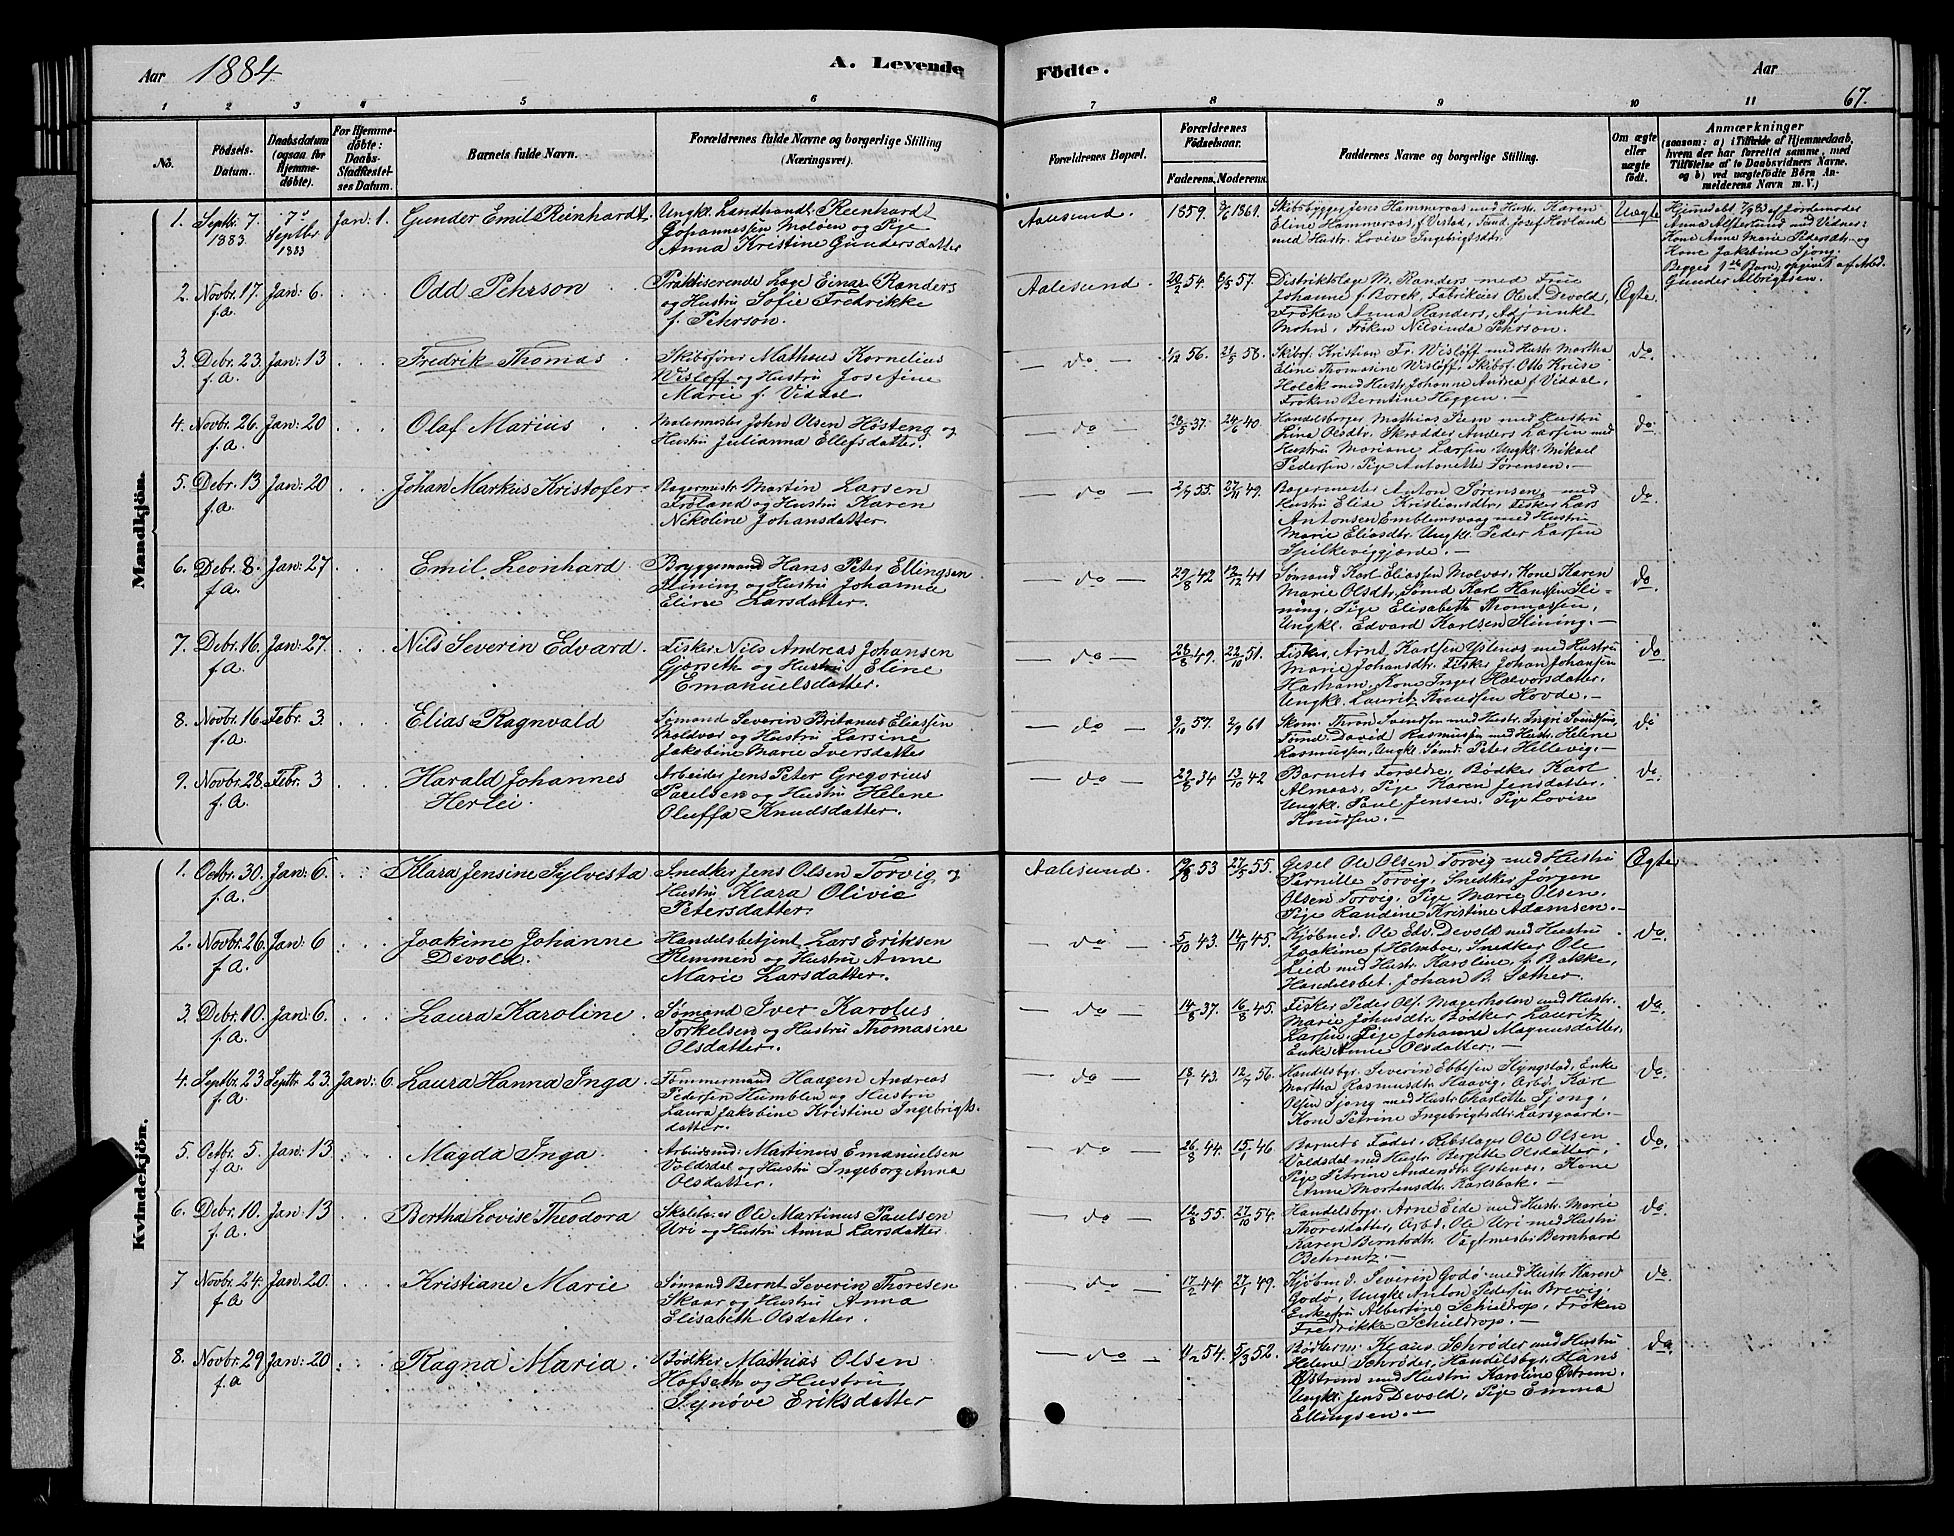 Aar 1884
A. Levende Fødte.
Aar
67.
1 2 3 4 5 6 7 8 9 10 11
No.
Fødsels-Datum.
Daabsdatum (ogsaa for Hjemmedøbte).
For Hjemmedøbte: Daabs-Stadfæstelses Datum.
Barnets fulde Navn.
Forældrenes fulde Navne og borgerlige Stilling (Næringsvei).
Forældrenes Bopæl.
Forældrenes Fødselsaar.
Faderens. Moderens.
Faddernes Navne og borgerlige Stilling.
Om ægte eller uægte født.
Anmærkninger
(saasom: a) i Tilfælde af Hjemmedaab, hvem der har forrettet samme, med Tilføielse af to Daabsvidners Navne, og b) ved uægtefødte Børn Anmelderens Navn m. V.)
Mandkjön.
1. Septbr. 7. 1883. 7de Septbr 1883 Jan: 1. Gunder Emil Reinhardt.
Ungkl. Landhandl. Reinhardt
Johannessen Moldøen og Pige
Anna Kristine Gundersdatter
Aalesund. 1859. 1861.
Skibsbygger Jens Hammeraas med Hustr. Karen
Eline Hammeraas f. Vistad, Tømd. Josef Hovland
med Hustr. Lovise Ingebrigtsdtr.
Uægte
Hjemdøbt 7/9 83 af Jordemoder
Kone Anne Marie Pedersdtr. og
Kone Jakobine Sjong.
Begges 1ste Barn, opgivet af Arbd.
Gunder Albrigtsen.
2. Novbr. 17. f. a. Jan: 6. Odd Pehrson
Praktiserende Læge Einar Randers
og Hustru Sofie Fredrikke
f. Pehrson.
Aalesund. 20/2 54. 57.
Distriktslæge M. Randers med Frue
Johanne f. Borck, Fabrikeier Ole A. Devold,
Frøken Anna Randers, Adjunkt
Mohn, Frøken Nilsinda Pehrson.
Ægte.
3. Debr. 23. f. a. Jan: 13 Fredrik Thomas
Skibsfører Matheus Kornelius
Wisløff og Hustru Josefine
Marie f. Viddal.
— do — 56. 21/5 58.
Skibsf. Kristian Fr. Wisløff med Hustr. Martha
Eline Thomasine Wisløff, Skibsf. Otto Kruse
Holck med Hustr. Johanne Andrea f. Viddal,
Frøken Berntine Heggen.
do
4. Novbr. 26. f. a. Jan: 20 Olaf Marius
Malermester John Olsen Høsteng og
Hustru Julianna Ellefsdatter.
— do — 28/5 37. 24/6 40.
Handelsborger Mathias Rem med Hustru
Lina Olsdtr. Skrædder Anders Larsen med
Hustru Mariane Larsen, Ungkl. Mikael
Pedersen, Pige Antonette Sørensen. —
do
5. Debr. 13 f. a. Jan: 20 Johan Markus Kristofer
Bagermestr. Martin Larsen
Frøland og Hustru Karen
Nikoline Johansdatter.
— do — 55. 27/11 49.
Bagermester Anton Sørensen med
Hustru Elise Kristiansdtr, Fisker Lars
Antonsen Emblemsvaag med Hustru
Marie Eliasdtr. Ungkl. Peder Larsen
Spilkeviggjærde. —
do
6. Debr. 8. f. a. Jan: 27 Emil Leonhard
Bryggemand Hans Peter Ellingsen
Slining og Hustru Johanne
Eline Larsdatter.
— do — 29/8 42 12/12 41
Sømand Karl Eliassen Molvær, Kone Karen
Marie Olsdtr, Sømd Karl Hanssen Sli-
ning, Pige Elisabeth Thomassen,
Ungkl. Edvard Karlsen Slining. —
do
7. Debr. 16. f. a. Jan: 27. Nils Severin Edvard.
Fisker Nils Andreas Johansen
Gjørseth og Hustru Eline
Emanuelsdatter.
— do — 28/8 49. 22/10 51.
Fisker Arnt Karlsen Ystenes med Hustru
Marie Johansdtr. Fisker Johan Johansen
Harham, Kone Inger Halvorsdatter,
Ungkl. Laurits Knudsen Hovde. —
do
8. Novbr. 16 f. a. Febr. 3 Elias Ragnvald
Sømand Severin Britanus Eliassen
Moldvær og Hustru Larsine
Jakobine Marie Iversdatter
— do — 9/10 57. 61
Skom. Thron Svendsen med Hustr. Ingri Svendsen,
Tømd. David Rasmussen med Hustr. Helene
Rasmussen, Ungkl. Sømd. Peter Hellevig. —
do
9. Novbr. 28. f. a. Febr. 3 Harald Johannes
Herlei.
Arbeider Jens Peter Gregorius
Paulsen og Hustru Helene
Oluffa Knudsdatter.
— do — 34 13/10 42
Barnets Forældre, Bødker Karl
Almaas, Pige Karen Jensdatter,
Ungkl. Paul Jensen. Pige Lovise
Knudsen. —
do
Kvindekjön.
1. Octbr. 30. f. a. Jan: 6. Klara Jensine Sylvesta
Snedker Jens Olsen Torvig og
Hustru Klara Olivie
Petersdatter.
Aalesund. 53 27/5 55.
Gesel Ole Olsen Torvig med Hustru
Pernille Torvig, Snedker Jørgen
Olsen Torvig. Pige Marie Olsen.
Pige Randine Kristine Adamsen. —
Ægte
2. Novbr. 26. f. a. Jan: 6 Joakime Johanne
Devold.
Handelsbetjent Lars Eriksen
Remmen og Hustru Anne
Marie Larsdatter.
— do — 5/10 43. 14/11 45.
Kjøbmd. Ole Edv. Devold med Hustru
Joakime f. Holmboe, Snedker Ole
Lied med Hustr. Karoline f. Bakke,
Handelsbet. Johan B. Sæther.
do
3. Debr. 10. f. a. Jan: 6. Laura Karoline
Sømand Iver Karolus
Torkelsen og Hustru Thomasine
Olsdatter.
— do — 14/8 37. 16/8 45.
Fisker Peder Ols. Magerholm med Hustr.
Marie Johnsdtr. Bødker Lauritz
Larsen. Pige Johanne Magnusdatter,
Enke Anne Olsdatter. —
do
4. Septbr. 23 f. a. Septbr 23. Jan: 6. Laura Hanna Inga
Tømmermand Haagen Andreas
Pedersen Humblen og Hustru
Laura Jakobine Kristine Ingebrigts-
datter.
— do — 18/1 43. 12/7 56.
Handelsbgr. Severin Ebbesen Slyngstad, Enke
Martha Rasmusdtr. Haavig, Arbd. Karl
Olsen Sjong med Hustr. Charlotte Sjong,
Kone Petrine Ingebrigtsdtr. Larsgaard. —
do
5. Octbr. 5 f. a. Jan: 13. Magda Inga
Arbeidsmd: Martinus Emanuelsen
Voldsdal og Hustru Ingeborg Anna
Olsdatter.
— do — 26/8 44. 15/1 46.
Barnets Fader, Rebslager Ole Olsen
Voldsdal med Hustr. Bergitte Olsdatter,
Pige Petrine Andersdtr. Ystenes, Kone
Anne Mortensdtr. Karlsbak. —
do
6. Debr. 10. f. a. Jan: 13 Bertha Lovise Theodora
Skolelærer Ole Martinus Paulsen
Uri og Hustru Anna Larsdatter.
— do — 12/8 55. 27/10 54.
Handelsbgr. Arne Eide med Hustr. Marie
Thoresdatter, Arbd. Ole Uri med Hustru
Karen Berntsdtr. Vagtmester Bernhard
Behrentz. —
do
7 Novbr. 24. f. a Jan: 20. Kristiane Marie
Sømand Bernt Severin Thoresen
Skaar og Hustru Anna
Elisabeth Olsdatter.
— do — 17/2 44. 27/1 49.
Kjøbmd. Severin Godø med Hustr. Karen
Godø, Ungkl. Anton Pedersen Brevig,
Enkefru Albertine Schieldrop, Frøken
Fredrikke Schieldrop. —
do
8. Novbr. 29 f. a Jan: 20. Ragna Maria.
Bødker Mathias Olsen
Hofseth og Hustru
Synøve Eriksdatter
— do — 54. 5/3 52.
Bødkerm. Klaus Schrøder med Hustru
Helene Schrøder, Handelsbgr. Hans
Østrem med Hustru Karoline Østrem.
Ungkl. Jens Devold, Pige Emma
Ellingsen. —
do